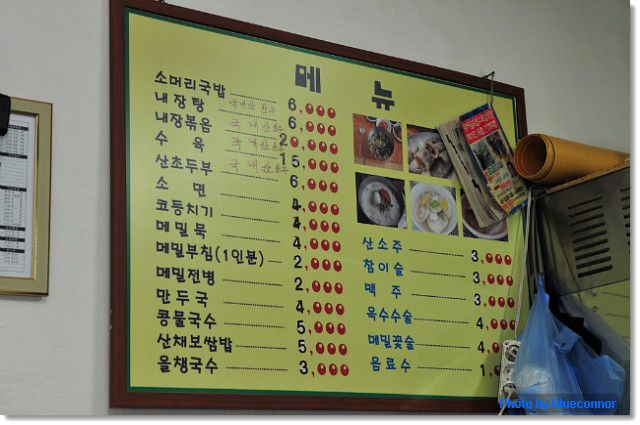 메 뉴
소머리국밥 6,000
내장탕 국내산 6,000
내장볶음 국내산 20,000
수 육 국내산 15,000
산초두부 국내산 6,000
소 면 4,000
코등치기 4,000
메밀묵 4,000
메밀부침(1인분) 2,000
메밀전병 2,000
만두국 4,000
콩물국수 5,000
산채보쌈밥 5,000
올챙국수 3,000
산소주 3,000
참이슬 3,000
맥 주 3,000
옥수수술 4,000
메밀꽃술 4,000
음료수 1,0
Photo by Blueconnor